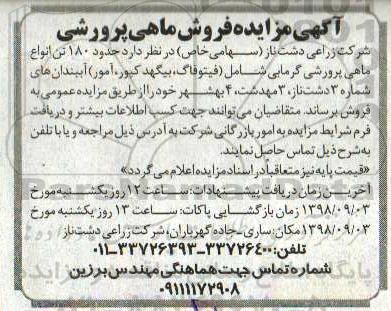 آگهی مزایده فروش ماهی پرورشی
شرکت زراعی دشت ناز (سهامی خاص) در نظر دارد حدود ۱۸۰ تن انواع
ماهی پرورشی گرمابی شامل (فیتوفاگ، بیگهد، کپور، آمور) آببندان های
شماره ۳ دشت ناز، ۳ مهدشت، ۴ بهشهر خود را از طریق مزایده عمومی به
فروش برساند. متقاضیان می توانند جهت کسب اطلاعات بیشتر و دریافت
فرم شرایط مزایده به امور بازرگانی شرکت به آدرس ذیل مراجعه و یا با تلفن
به شرح ذیل تماس حاصل نمایند.
«قیمت پایه نیز متعاقباً در اسناد مزایده اعلام می گردد»
آخرین زمان دریافت پیشنهادات: ساعت ۱۲ روز یکشنبه مورخ
۱۳۹۸/۰۹/۰۳ زمان بازگشایی پاکات: ساعت ۱۳ روز یکشنبه مورخ
۱۳۹۸/۰۹/۰۳ مکان: ساری-جاده گهرباران، شرکت زراعی دشت ناز
تلفن: ۳۳۷۲۶۴۰۰-۳۳۷۲۶۳۹۳-۰۱۱
شماره تماس جهت هماهنگی مهندس برزین
۰۹۱۱۱۱۷۲۹۰۸